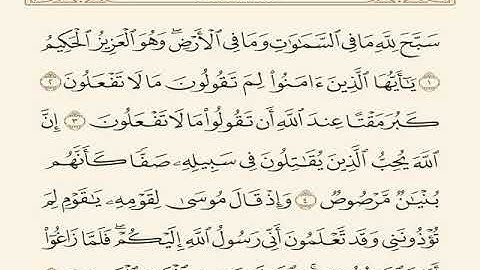 سَبَّحَ لِلَّهِ مَا فِي السَّمَٰوَٰتِ وَمَا فِي الْأَرْضِ ۖ وَهُوَ الْعَزِيزُ الْحَكِيمُ
١ يَٰٓأَيُّهَا الَّذِينَ ءَامَنُوا۟ لِمَ تَقُولُونَ مَا لَا تَفْعَلُونَ ٢
كَبُرَ مَقْتًا عِندَ اللَّهِ أَن تَقُولُوا۟ مَا لَا تَفْعَلُونَ ٣ إِنَّ
اللَّهَ يُحِبُّ الَّذِينَ يُقَٰتِلُونَ فِي سَبِيلِهِۦ صَفًّا كَأَنَّهُم
بُنْيَٰنٌ مَّرْصُوصٌ ٤ وَإِذْ قَالَ مُوسَىٰ لِقَوْمِهِۦ يَٰقَوْمِ لِمَ
تُؤْذُونَنِي وَقَد تَّعْلَمُونَ أَنِّي رَسُولُ اللَّهِ إِلَيْكُمْ ۖ فَلَمَّا زَاغُوٓا۟